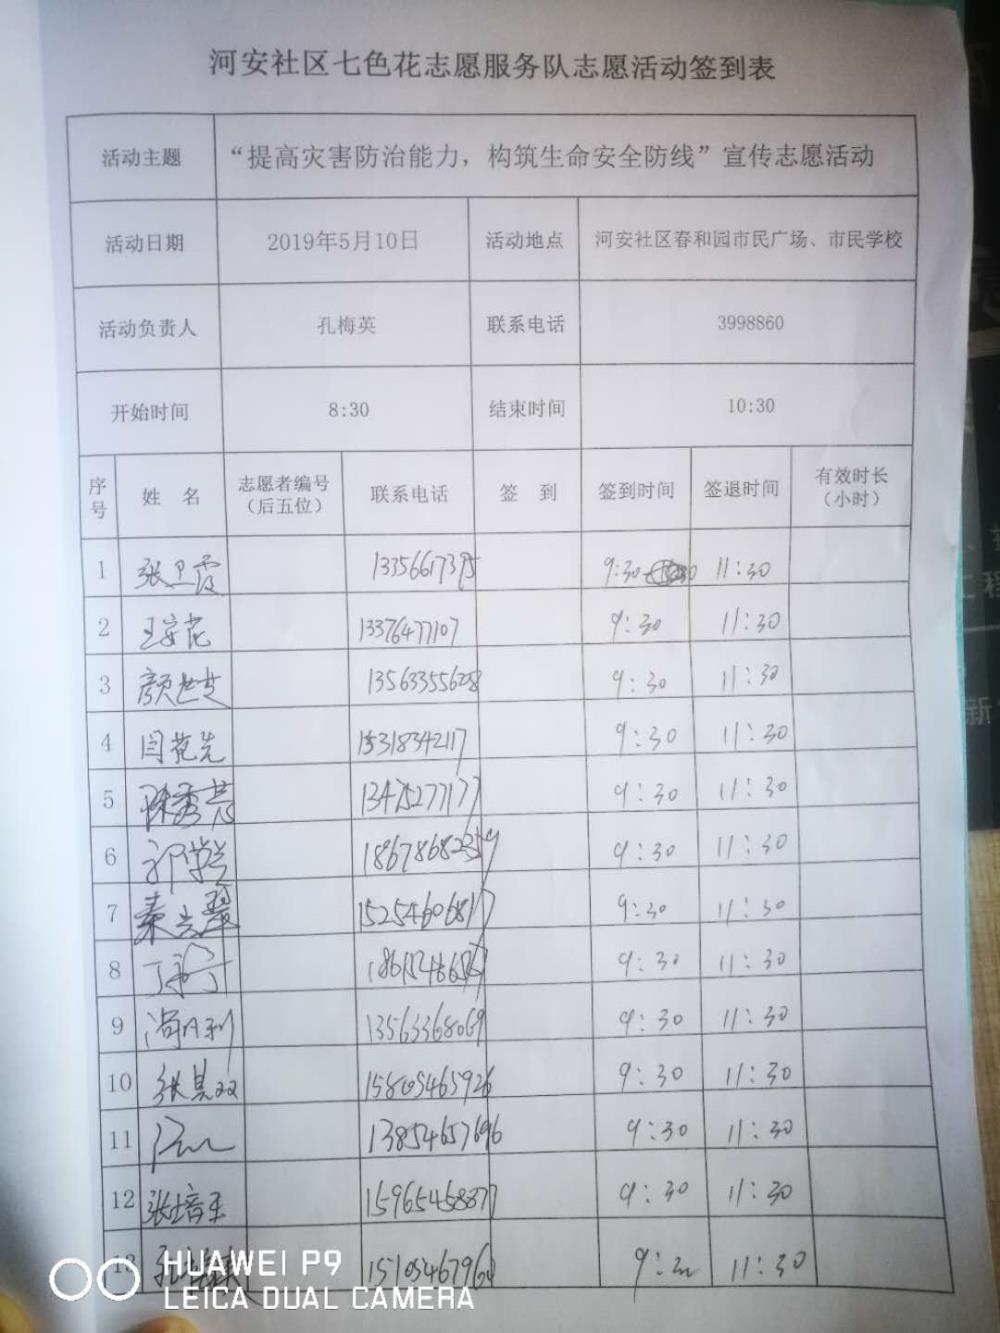 河安社区七色花志愿服务队志愿活动签到表
活动主题 “提高灾害防治能力，构筑生命安全防线”宣传志愿活动
活动日期 2019年5月10日 活动地点 河安社区春和园市民广场、市民学校
活动负责人 孔梅英 联系电话 3998860
开始时间 8:30 结束时间 10:30
序号 姓 名 志愿者编号（后五位） 联系电话 签 到 签到时间 签退时间 有效时长（小时）
1 张卫霞 13356617375 9:30 11:30
2 王安花 13376477107 9:30 11:30
3 颜世芝 13563355628 9:30 11:30
4 闫苑先 15318342117 9:30 11:30
5 陈秀亮 13475277177 9:30 11:30
6 18678682359 9:30 11:30
7 秦 15254606817 9:30 11:30
8 丁 9:30 11:30
9 尚 利 13563368069 9:30 11:30
10 张 15805465926 9:30 11:30
11 13854657696 9:30 11:30
12 张培玉 15965458377 9:30 11:30
13 15105467960 9:30 11:30
HUAWEI P9
LEICA DUAL CAMERA